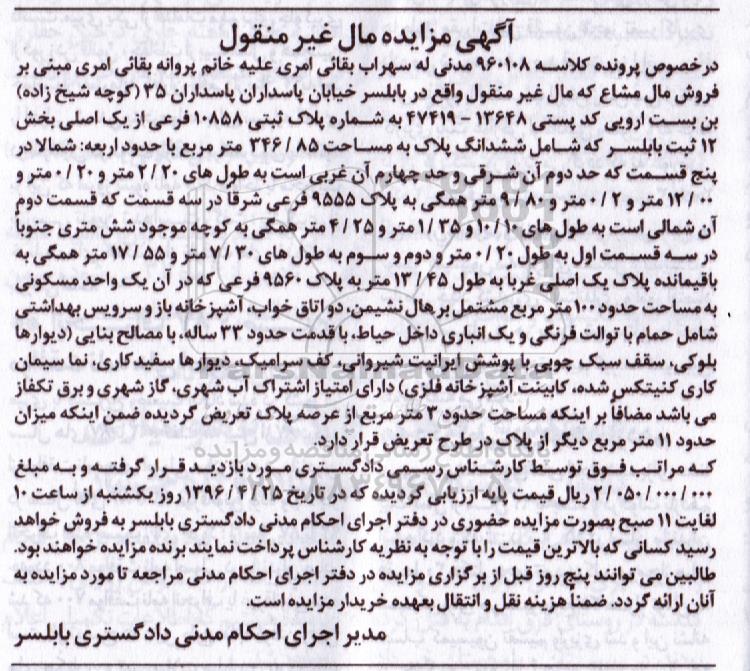 آگهی مزایده مال غیر منقول
درخصوص پرونده کلاسه ۹۶۰۱۰۸ مدنی له سهراب بقائی امری علیه خانم پروانه بقائی امری مبنی بر
فروش مال مشاع که مال غیر منقول واقع در بابلسر خیابان پاسداران پاسداران ۳۵ (کوچه شیخ زاده)
بن بست اروپی کد پستی ۱۳۶۴۸ - ۴۷۴۱۹ به شماره پلاک ثبتی ۱۰۸۵۸ فرعی از یک اصلی بخش
۱۲ ثبت بابلسر که شامل ششدانگ پلاک به مساحت ۸۵ / ۲۴۶ متر مربع با حدود اربعه: شمالا در
پنج قسمت که حد دوم آن شرقی و حد چهارم آن غربی است به طول های ۲۰ / ۲ متر و ۲۰ / ۰ متر و
۰۰ / ۱۲ متر و ۲ / ۰ متر و ۸۰ / ۹ متر همگی به پلاک ۹۵۵۵ فرعی شرقاً در سه قسمت که قسمت دوم
آن شمالی است به طول های ۱۰ / ۱۰ و ۳۵ / ۱ متر و ۲۵ / ۴ متر همگی به کوچه موجود شش متری جنوباً
در سه قسمت اول به طول ۲۰ / ۰ متر و دوم و سوم به طول های ۳۰ / ۷ متر و ۵۵ / ۱۷ متر همگی به
باقیمانده پلاک یک اصلی غرباً به طول ۴۵ / ۱۳ متر به پلاک ۹۵۶۰ فرعی که در آن یک واحد مسکونی
به مساحت حدود ۱۰۰ متر مربع مشتمل بر هال نشیمن، دو اتاق خواب، آشپزخانه باز و سرویس بهداشتی
شامل حمام با توالت فرنگی و یک انباری داخل حیاط، با قدمت حدود ۳۳ ساله، با مصالح بنایی (دیوارها
بلوکی، سقف سبک چوبی با پوشش ایرانیت شیروانی، کف سرامیک، دیوارها سفیدکاری، نما سیمان
کاری کنیتکس شده، کابینت آشپزخانه فلزی) دارای امتیاز اشتراک آب شهری، گاز شهری و برق تکفاز
می باشد مضافاً بر اینکه مساحت حدود ۳ متر مربع از عرصه پلاک تعریض گردیده ضمن اینکه میزان
حدود ۱۱ متر مربع دیگر از پلاک در طرح تعریض قرار دارد.
که مراتب فوق توسط کارشناس رسمی دادگستری مورد بازدید قرار گرفته و به مبلغ
۲/۰۵۰/۰۰۰/۰۰۰ ریال قیمت پایه ارزیابی گردیده که در تاریخ ۲۵ / ۴ / ۱۳۹۶ روز یکشنبه از ساعت ۱۰
لغایت ۱۱ صبح بصورت مزایده حضوری در دفتر اجرای احکام مدنی دادگستری بابلسر به فروش خواهد
رسید کسانی که بالاترین قیمت را با توجه به نظریه کارشناس پرداخت نمایند برنده مزایده خواهند بود.
طالبین می توانند پنج روز قبل از برگزاری مزایده در دفتر اجرای احکام مدنی مراجعه تا مورد مزایده به
آنان ارائه گردد. ضمنا هزینه نقل و انتقال بعهده خریدار مزایده است.
مدیر اجرای احکام مدنی دادگستری بابلسر